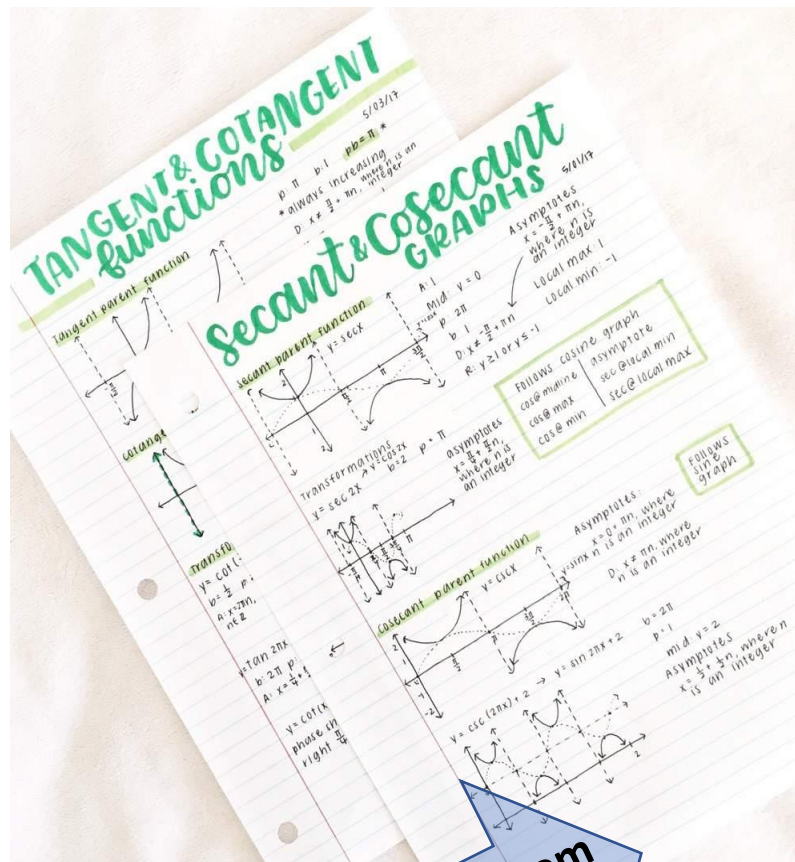 TANGENT & COTANGENT
functions
5/03/17
p: π b: 1 pb = π *
* always increasing
D: x ≠ π/2 + πn, where n is an integer
Tangent parent function
cotange
Transfo
y = cot(
b = 1/2 p:
A: x = 2πn,
n∈Z
y = Tan 2πx
b: 2π p:
A: x = 1/4 +
y = cot(x
phase sh
right π/4
secant & Cosecant
GRAPHS
5/01/17
secant parent function
y = secx
A: 1
Mid: y = 0
p: 2π
b: 1
D: x ≠ π/2 + πn
R: y ≥ 1 or y ≤ -1
Asymptotes
x = -π/2 + πn,
where n is
an integer
Local max: 1
Local min: -1
Follows cosine graph
cos@midline asymptote
cos@max sec@local min
cos@min sec@local max
Transformations
y = sec 2x → y = cos 2x
b = 2 p = π
asymptotes
x = π/4 + π/2n,
where n is
an integer
Follows
sine
graph
cosecant parent function
y = cscx
y = sinx
Asymptotes:
x = 0 + πn, where
n is an integer
D: x ≠ πn, where
n is an integer
y = csc (2πx) + 2 → y = sin 2πx + 2
b = 2π
p = 1
mid: y = 2
Asymptotes
x = 1/2 + 1/2n, where n
is an integer
om